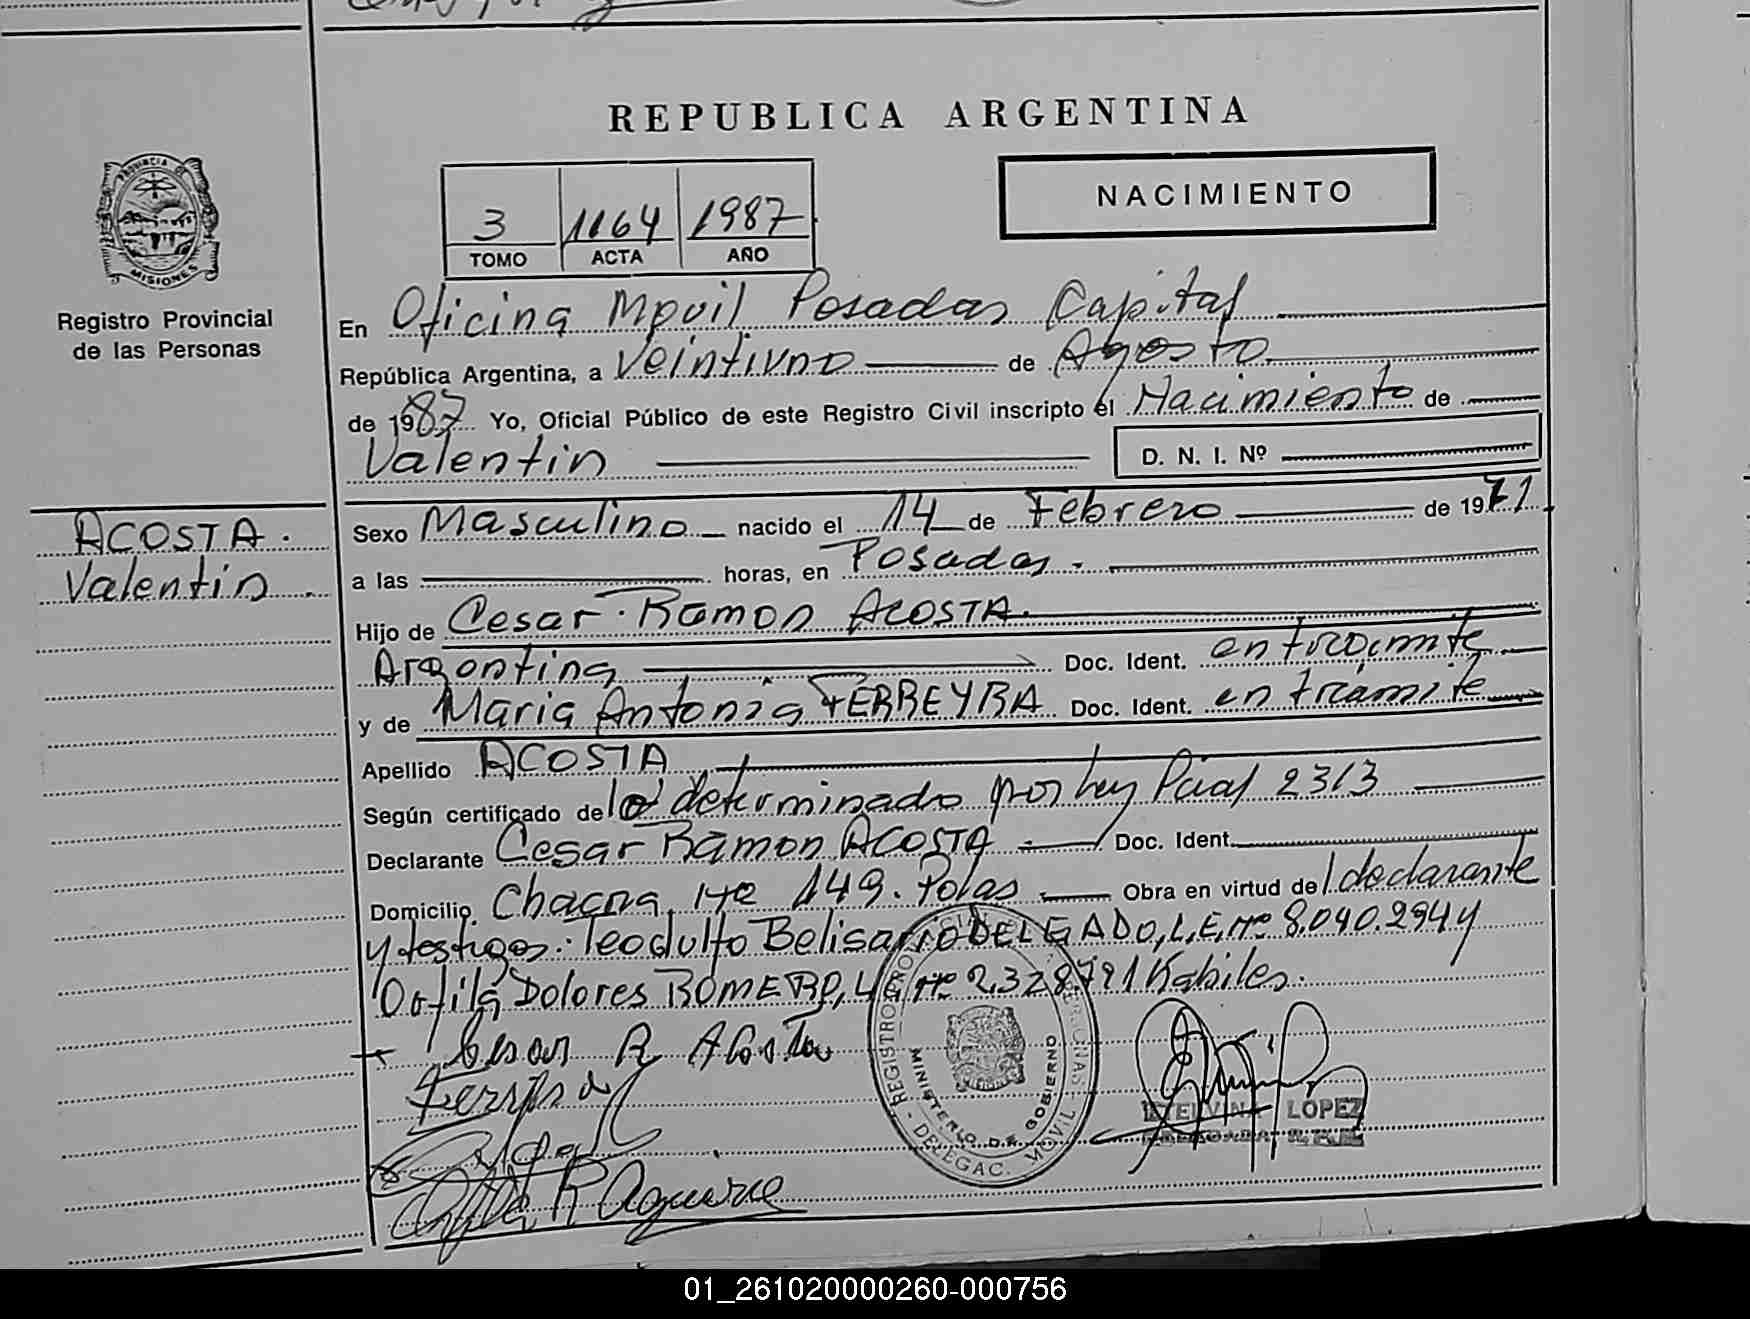 REPUBLICA ARGENTINA
NACIMIENTO
3 1164 1987
TOMO ACTA AÑO
PROVINCIA DE
MISIONES
Registro Provincial
de las Personas
ACOSTA.
Valentin.
En Oficina Movil Posadas Capital
República Argentina, a Veintiuno de Agosto
de 1987 Yo, Oficial Público de este Registro Civil inscripto el Nacimiento de
Valentin D. N. I. Nº
Sexo Masculino nacido el 14 de Febrero de 1971
a las horas, en Posadas.
Hijo de Cesar Ramon ACOSTA.
Argentina Doc. Ident. en trámite
y de Maria Antonia FERREYRA Doc. Ident. en trámite
Apellido ACOSTA
Según certificado de lo determinado por Ley Pcial 2313
Declarante Cesar Ramon ACOSTA Doc. Ident.
Domicilio Chacra Nº 149. Pdas Obra en virtud del declarante
y testigos: Teodulfo Belisario DELGADO, L.E. Nº 8.040.294 y
Dolores ROMERO, Nº 2.328791 Habiles.
Cesar R Acosta
R Aguirre
REGISTRO PROVINCIAL PERSONAS
MINISTERIO DE GOBIERNO
DELEGAC. MOVIL
LOPEZ
01_261020000260-000756